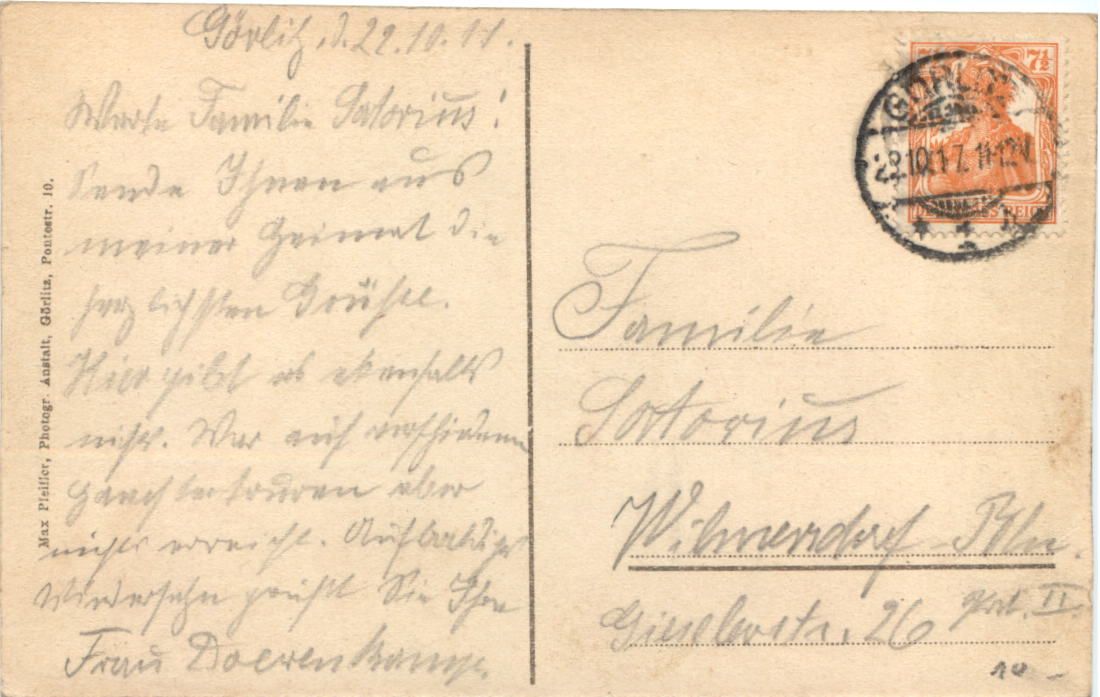 Görlitz, d. 22.10.17.
Werte Familie Satorius!
Sende Ihnen aus
meiner Heimat die
herzlichsten Grüße.
Hier gibt es ebenfalls
nichts. War auf verschiedenen
Hamstertouren aber
nichts erreicht. Auf baldiges
Wiedersehn grüßt Sie Ihre
Frau
Max Pfeiffer, Photogr. Anstalt, Görlitz, Pontestr. 10.
7½ 7½
DEUTSCHES REICH
GÖRLITZ
22.10.17. 11-12V.
* 1
Familie
Satorius
Wilmersdorf-Bln.
Gieselerstr. 26 II.
10